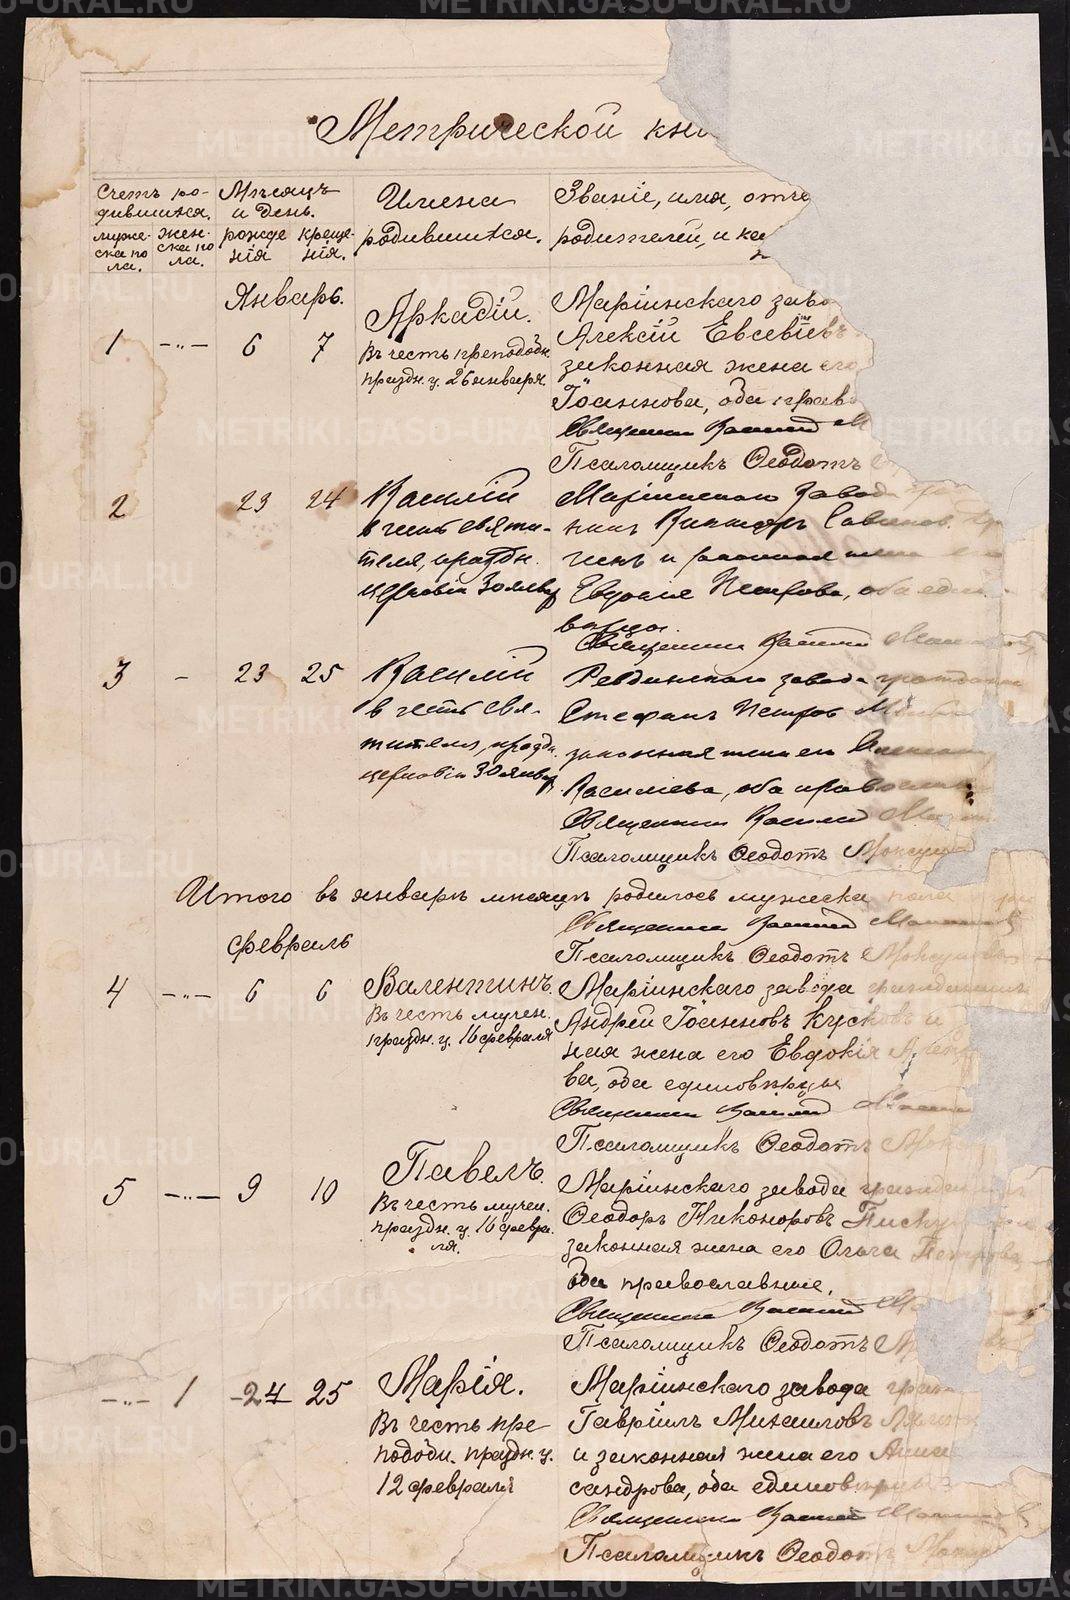 Метрической кни
Счетъ ро-
дившихся.
муже-
ска по
ла.
жен-
ска по
ла.
Мѣсяцъ
и день.
рожде
нія
креще-
нія.
Имена
родившихся.
Званіе, имя, отче
родителей, и ка
Январь.
1 -"- 6 7
Аркадій.
Въ честь преподобн.
праздн. ц. 26 января
Маріинскаго заво
Алексій Евсевіевъ
законная жена его
Іоаннова, оба прав
Священникъ Василій М
Псаломщикъ Ѳеодотъ
2 23 24
Василій
в честь святи-
теля, праздн.
церковію 30 янвр
Маріинскаго Завода
нинъ Викторъ Савинов.
жена
Евдокія Петрова, оба един
верцы.
Священникъ Василій
3 - 23 25
Василій
в честь свя-
тителя, праздн.
церковію 30 янвр
Ревдинскаго завода гражданин
Стефанъ Петров
законная жена его
Василіева, оба православн
Священникъ Василій
Псаломщикъ Ѳеодотъ
Итого въ январѣ мѣсяцѣ родилось мужеска пола
Священникъ Василій
Псаломщикъ Ѳеодотъ
Февраль
4 -"- 6 6
Валентинъ.
Въ честь мучен.
праздн. ц. 16 февраля
Маріинскаго завода гражданинъ
Андрей Іоанновъ Кусковъ и
ная жена его Евдокія
ва, оба единовѣрцы
Священникъ Василій
Псаломщикъ Ѳеодотъ
5 -"- 9 10
Павелъ.
Въ честь мучен.
праздн. ц. 16 февра-
ля.
Маріинскаго завода гражданин
Ѳеодоръ Никоноровъ Пискун
законная жена его Ольга Петрова,
оба православные.
Священникъ Василій
Псаломщикъ Ѳеодотъ
-"- 1 24 25
Марія.
Въ честь пре-
подобн. праздн. ц.
12 февраля
Маріинскаго завода граж
Гавріилъ Михаиловъ
и законная жена его
сандрова, оба единоверцы
Священникъ Василій
Псаломщикъ Ѳеодотъ
METRIKI.GASO-URAL.RU